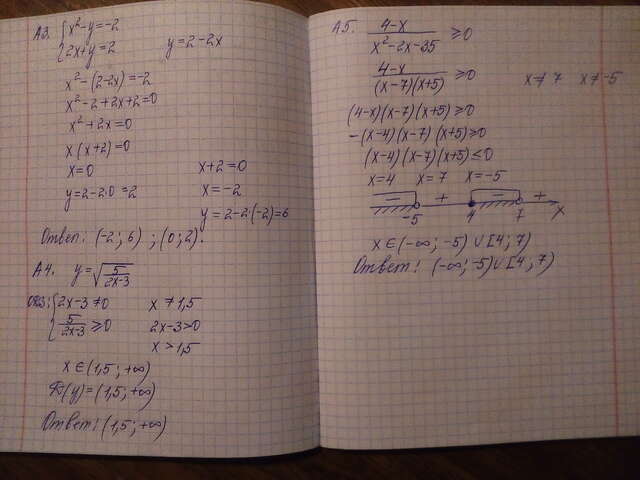 А3. { x²-y=-2
{ 2x+y=2 y=2-2x
x²-(2-2x)=-2
x²-2+2x+2=0
x²+2x=0
x(x+2)=0
x=0 x+2=0
y=2-2·0=2 x=-2
y=2-2·(-2)=6
Ответ: (-2; 6) ; (0; 2).
А4. y=√(5/(2x-3))
ОДЗ: { 2x-3≠0 x≠1,5
{ 5/(2x-3) ≥0 2x-3>0
x>1,5
x∈(1,5; +∞)
D(y)=(1,5; +∞)
Ответ: (1,5; +∞)
А5. (4-x)/(x²-2x-35) ≥0
(4-x)/((x-7)(x+5)) ≥0 x≠7 x≠-5
(4-x)(x-7)(x+5)≥0
-(x-4)(x-7)(x+5)≥0
(x-4)(x-7)(x+5)≤0
x=4 x=7 x=-5
- + - +
-5 4 7 x
x∈(-∞; -5)∪[4; 7)
Ответ: (-∞; -5)∪[4; 7)